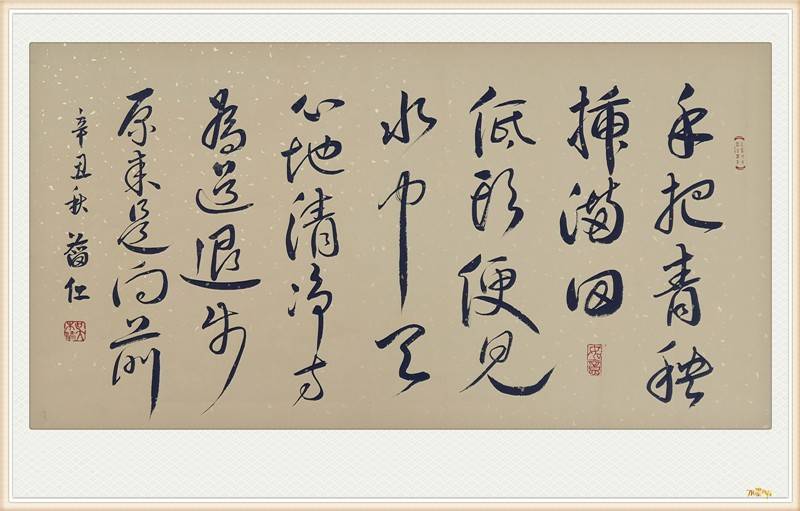 手把青秧
插滿田
低頭便見
水中天
心地清净方
為道退步
原来是向前
辛丑秋